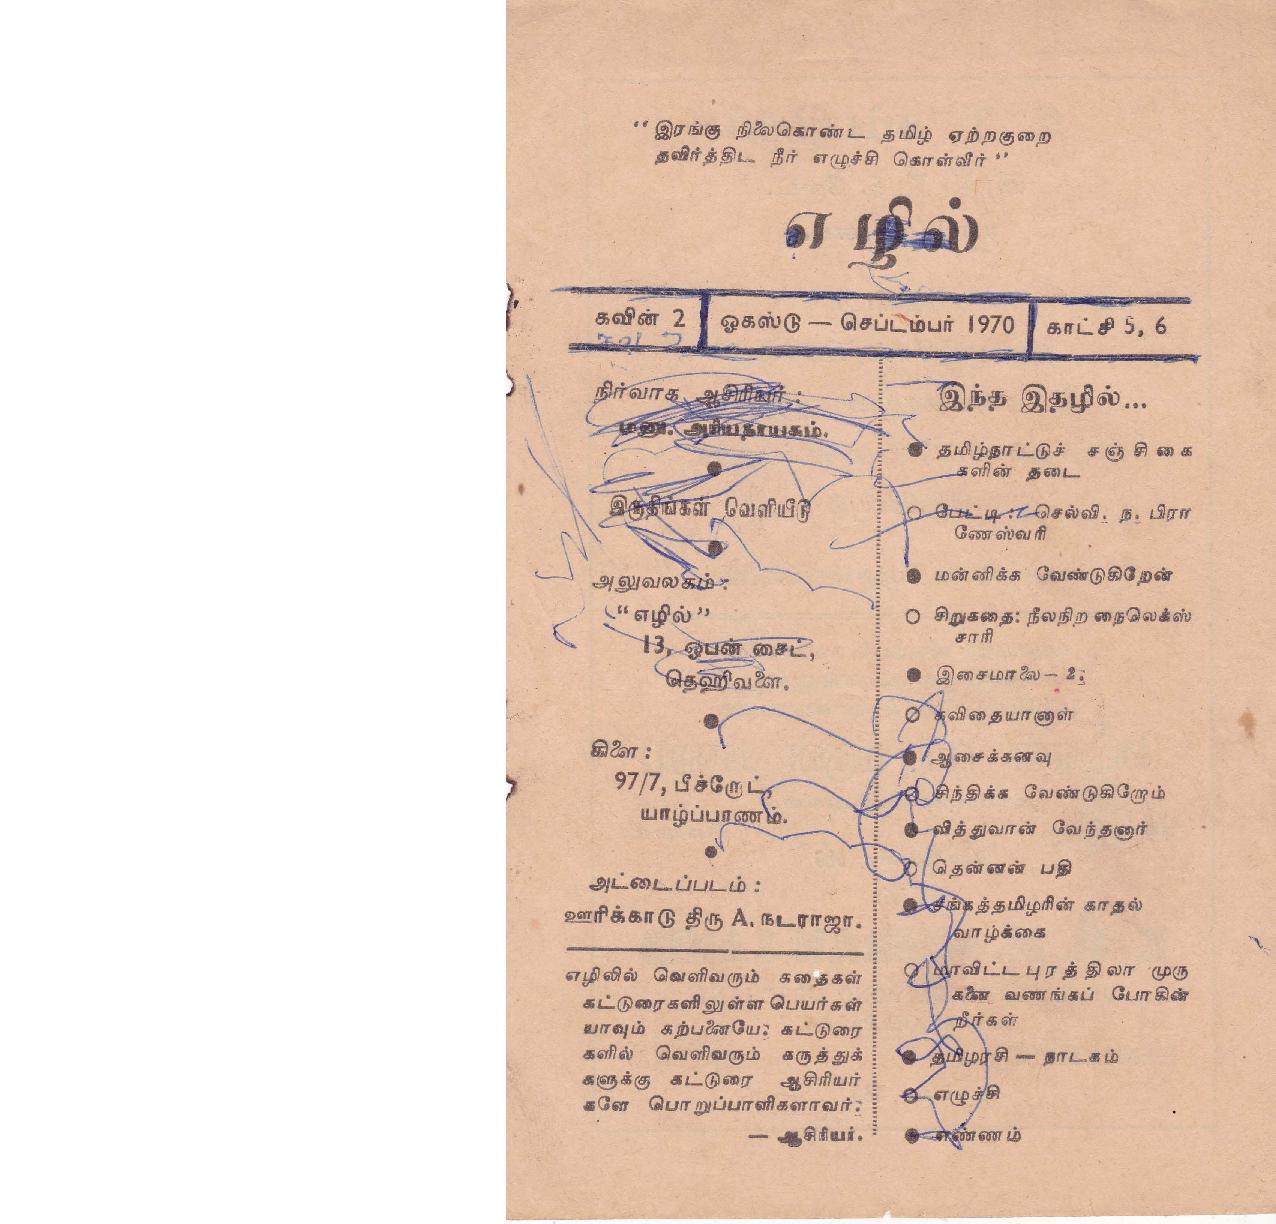 “இரங்கு நிலைகொண்ட தமிழ் ஏற்றகுறை
தவிர்த்திட நீர் எழுச்சி கொள்வீர்”
எழில்
கவின் 2
ஓகஸ்டு — செப்டம்பர் 1970
காட்சி 5, 6
நிர்வாக ஆசிரியர் :
மனு. அரியநாயகம்.
இருதிங்கள் வெளியீடு
அலுவலகம் :
“எழில்”
13, ஓபன் சைட்,
தெஹிவளை.
கிளை :
97/7, பீச்றோட்,
யாழ்ப்பாணம்.
அட்டைப்படம் :
ஊரிக்காடு திரு A. நடராஜா.
எழிலில் வெளிவரும் கதைகள்
கட்டுரைகளிலுள்ள பெயர்கள்
யாவும் கற்பனையே; கட்டுரை
களில் வெளிவரும் கருத்துக்
களுக்கு கட்டுரை ஆசிரியர்
களே பொறுப்பாளிகளாவர்.
— ஆசிரியர்.
இந்த இதழில்...
தமிழ்நாட்டுச் சஞ்சிகை
களின் தடை
பேட்டி : செல்வி. ந. பிரா
ணேஸ்வரி
மன்னிக்க வேண்டுகிறேன்
சிறுகதை: நீலநிற நைலெக்ஸ்
சாரி
இசைமாலை – 2.
கவிதையானாள்
ஆசைக்கனவு
சிந்திக்க வேண்டுகிறோம்
வித்துவான் வேந்தனார்
தென்னன் பதி
சங்கத்தமிழரின் காதல்
வாழ்க்கை
மாவிட்டபுரத்திலா முரு
கனை வணங்கப் போகின்
றீர்கள்
தமிழரசி — நாடகம்
எழுச்சி
எண்ணம்